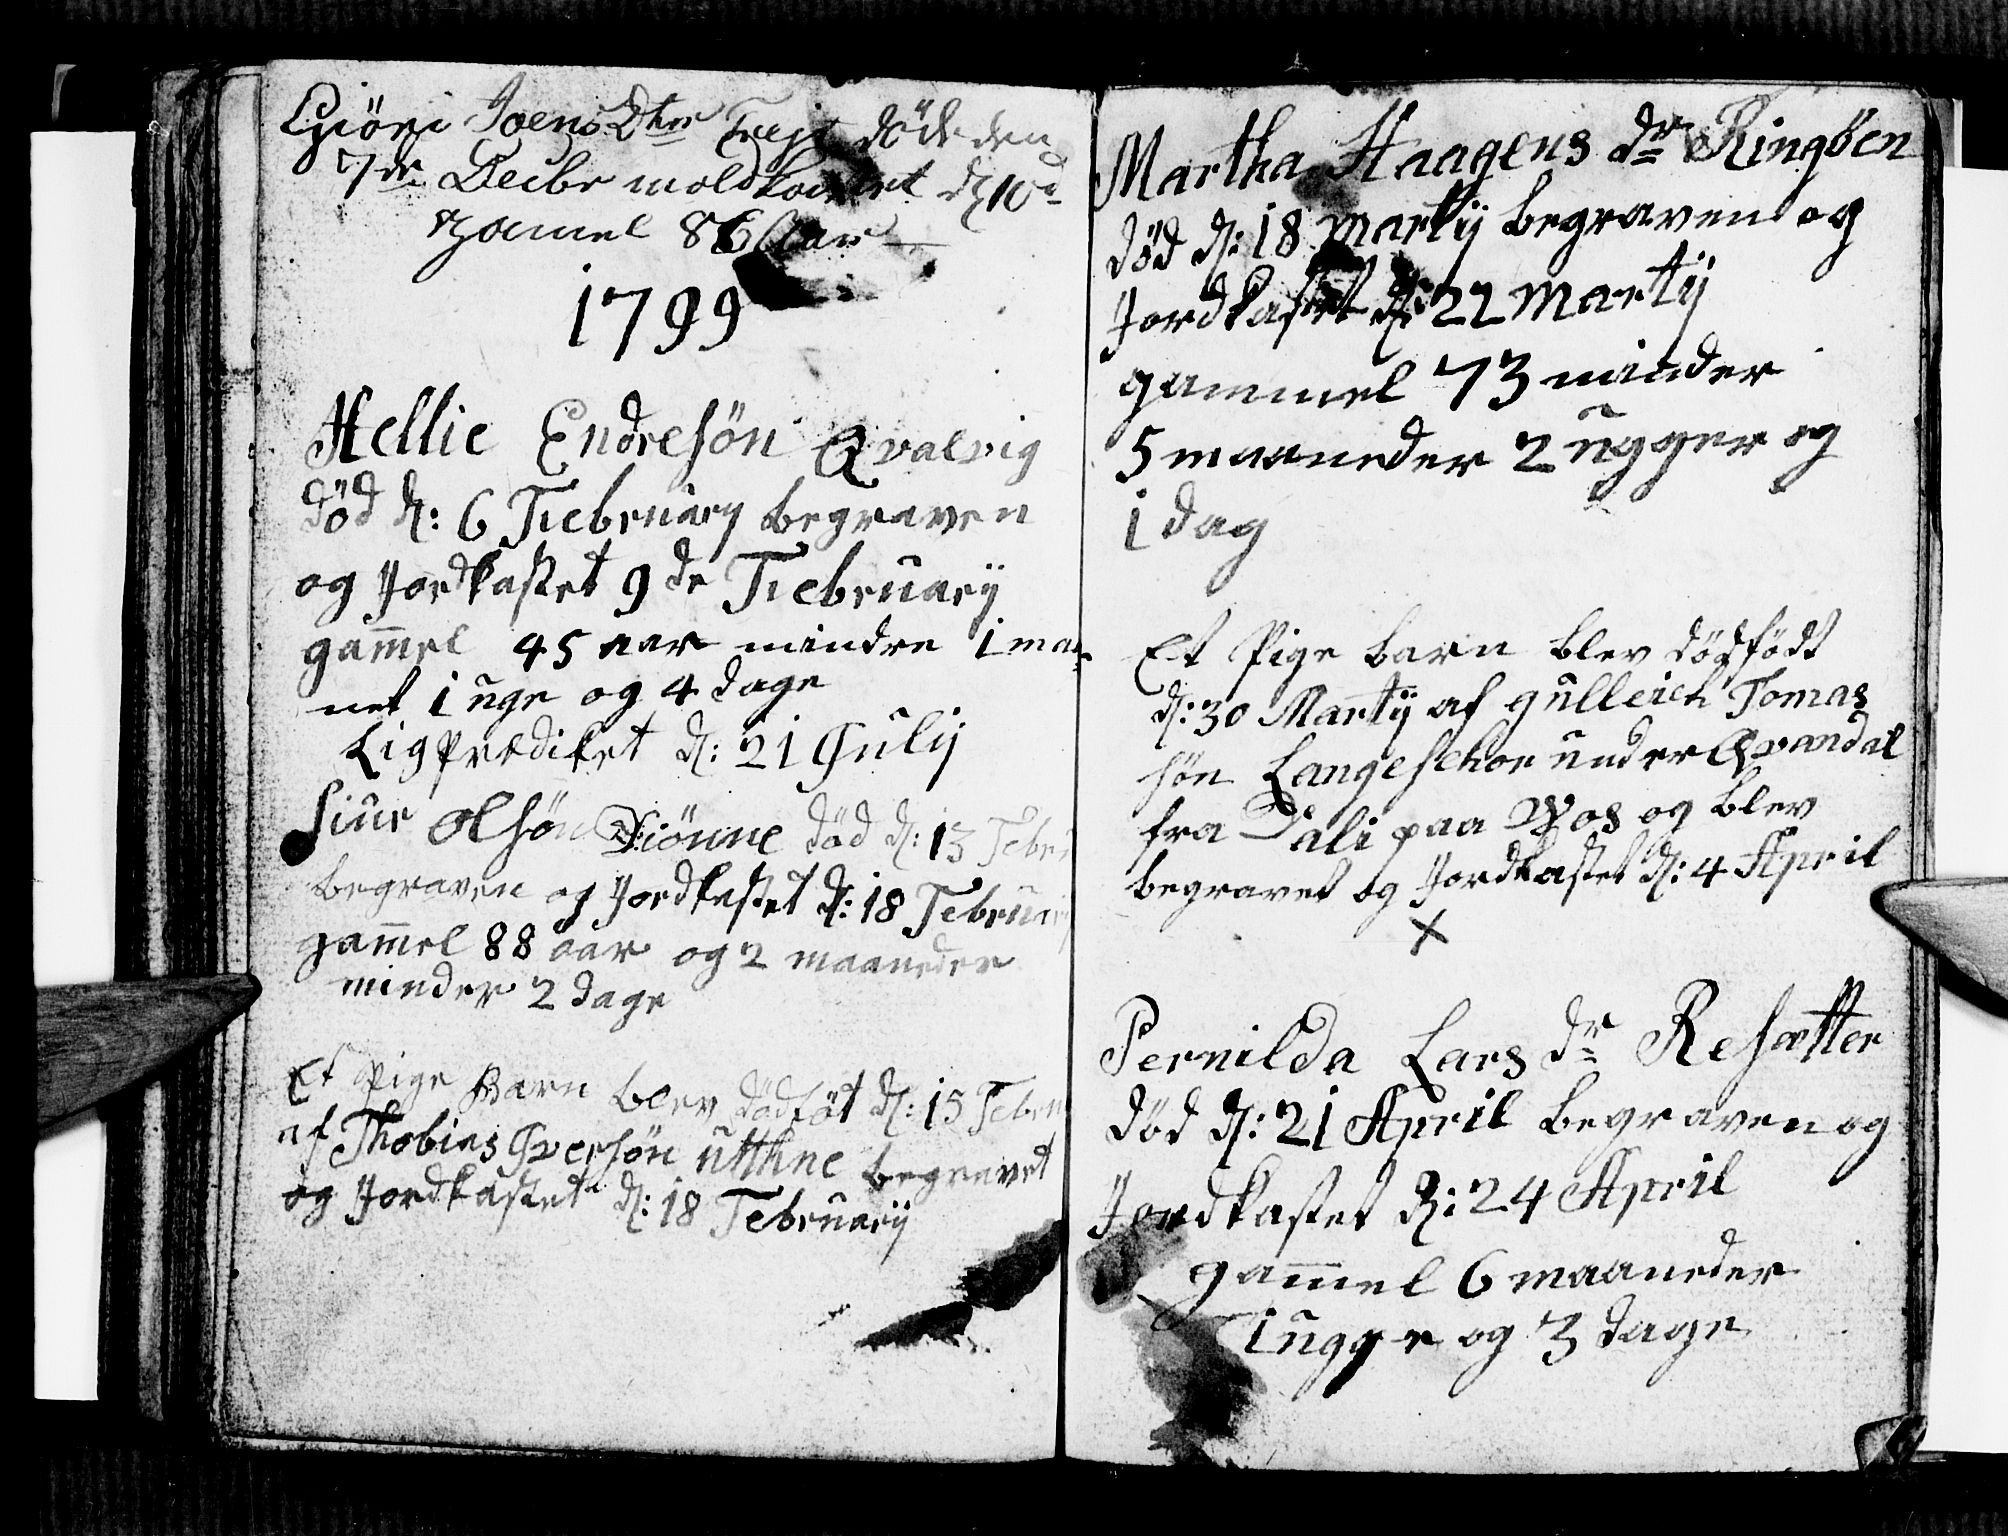 Giöri Joens Dtr Treje döde den
7de Decbr moldkastet d: 10d
gamel 86 Aar
1799
Hellie Endresön Qvalvig
död d: 6 Februarij begraven
og Jordkastet 9de Februarij
gam̄el 45 aar mindre 1 maa
net 1 uge og 4 dage
Ligprædiket d: 21 Julij
Siur Olsön Diönne död d: 13 Febru
begraven og Jordkastet d: 18 Februarij
gam̄el 88 aar og 2 maaneder
minder 2 dage
Et Pige Barn blev dödföt d: 15 Febru
af Thobias Iversön Utthne begravet
og Jordkastet d: 18 Februarij
Martha Haagens dr Ringöen
död d: 18 Martij begraven og
Jordkastet d: 22 Martij
gammel 73 minder
5 maaneder 2 ugger og
1 dag
Et Pige barn blev dödfödt
d: 30 Martij af gulleich Tomas
sön Langeschor under Qvandal
fra Dali paa Wos og blev
begravet og Jordkastet d: 4 April
x
Pernilda Lars dr Resætter
död d: 21 April begraven og
Jordkastet d: 24 April
gam̄el 6 maaneder
1 ugge og 3 dage